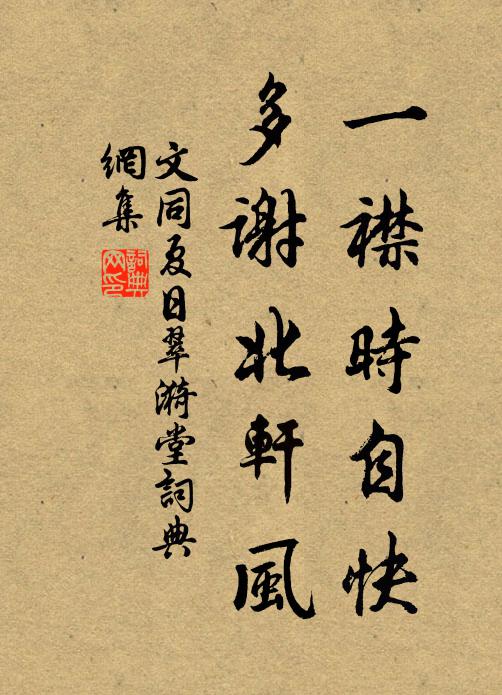 一襟時自快
多謝北軒風
文同夏日翠漪堂詞典
網集
詞典網印